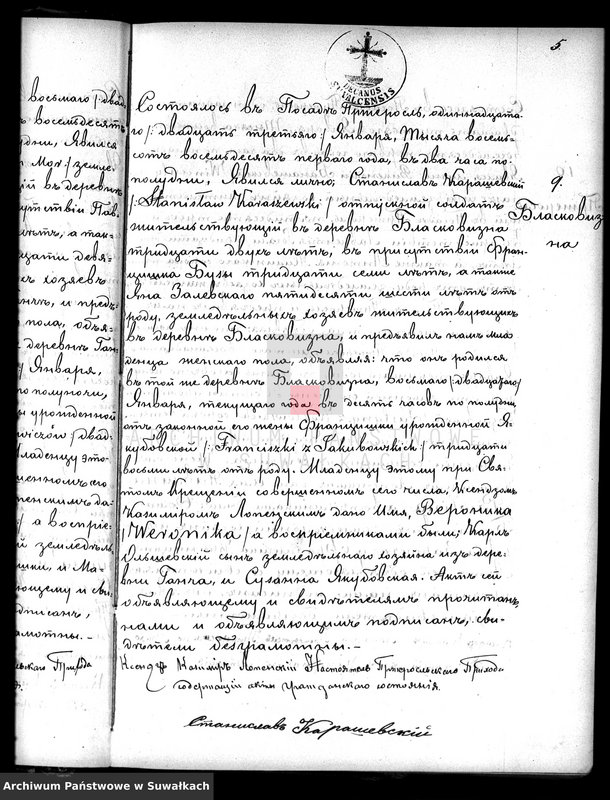 5
DECANOS
восьмаго /:двад
ь восемьдесятъ
дни, Явился
Моя/ земле
ій въ деревнѣ
утствіи Пав
лѣтъ, а так
цати девя-
хъ хозяевъ
нчѣ, и предъ
пола, объя-
деревнѣ Ган
Января,
по полуночи,
ы урожденной
двад-
Младенцу это-
шенномъ сего
пенскимъ да-
/ а воспріе-
й земледѣль
шки, и Ма-
ющему и сви
дписанъ,
амотны.-
льскаго Прихода
Состоялось въ Посадѣ Пржеросль, одиннадцата-
го /:двадцать третьяго:/ Января, Тысяча восемь-
сотъ восемьдесятъ перваго года, въ два часа по-
полудни, Явился лично, Станиславъ Карашевскій
/:Stanisław Karaszewski/ отпускной солдатъ
жительствующій въ деревнѣ Бласковизна
тридцати двухъ лѣтъ, въ присутствіи Фран-
цишка Бузы тридцати семи лѣтъ, а также
Яна Залевскаго пятидесяти шести лѣтъ отъ
роду, земледѣльныхъ хозяевъ жительствующихъ
въ деревнѣ Бласковизна, и предъявилъ намъ мла
денца женскаго пола, объявляя: что онъ родился
въ той же деревнѣ Бласковизна, восьмаго /:двадцатаго/
Января, текущаго года въ десять часовъ по полудни
отъ законной его жены Францишки урожденной Я-
кубовской /:Franciszki z Jakubowskich/ тридцати
восьми лѣтъ отъ роду. Младенцу этому при Свя-
томъ Крещеніи совершенномъ сего числа, Ксендзомъ
Казимиромъ Лопенскимъ дано Имя, Вероника
/Weronika/ а воспріемниками были, Карлъ
Ольшевскій сынъ земледѣльнаго хозяина изъ дере-
вни Ганча, и Сузанна Якубовская. Актъ сей
объявляющему и свидѣтелямъ прочитанъ
нами и объявляющимъ подписанъ, сви-
дѣтели безграмотны.-
Ксендзъ Казимиръ Лопенскій Настоятель Пржеросльскаго Прихода
содержащій акты гражданскаго состоянія.
Станиславъ Карашевскій
9.
Бласковиз
на
Archiwum Państwowe w Suwałkach